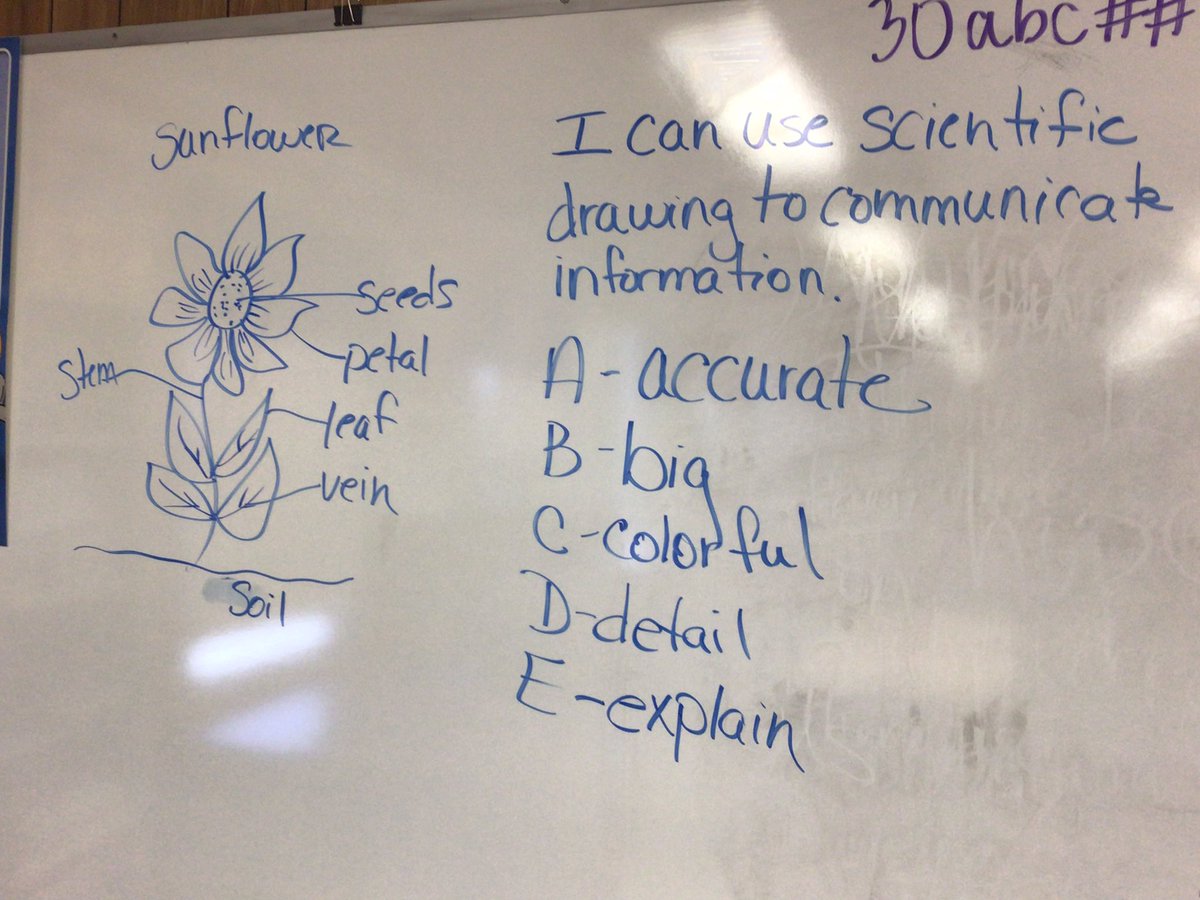 30abc##
sunflower
seeds
petal
stem
leaf
vein
soil
I can use scientific
drawing to communicate
information.
A - accurate
B - big
C - colorful
D - detail
E - explain